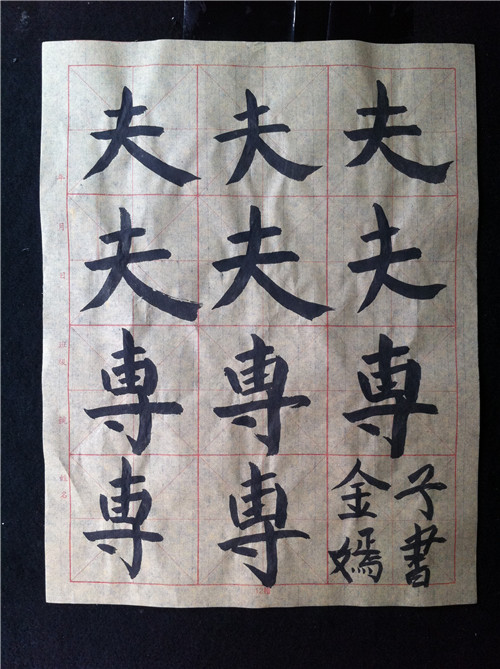 夫夫夫
夫夫夫
専専専
専専
金嫣
子書
姓名